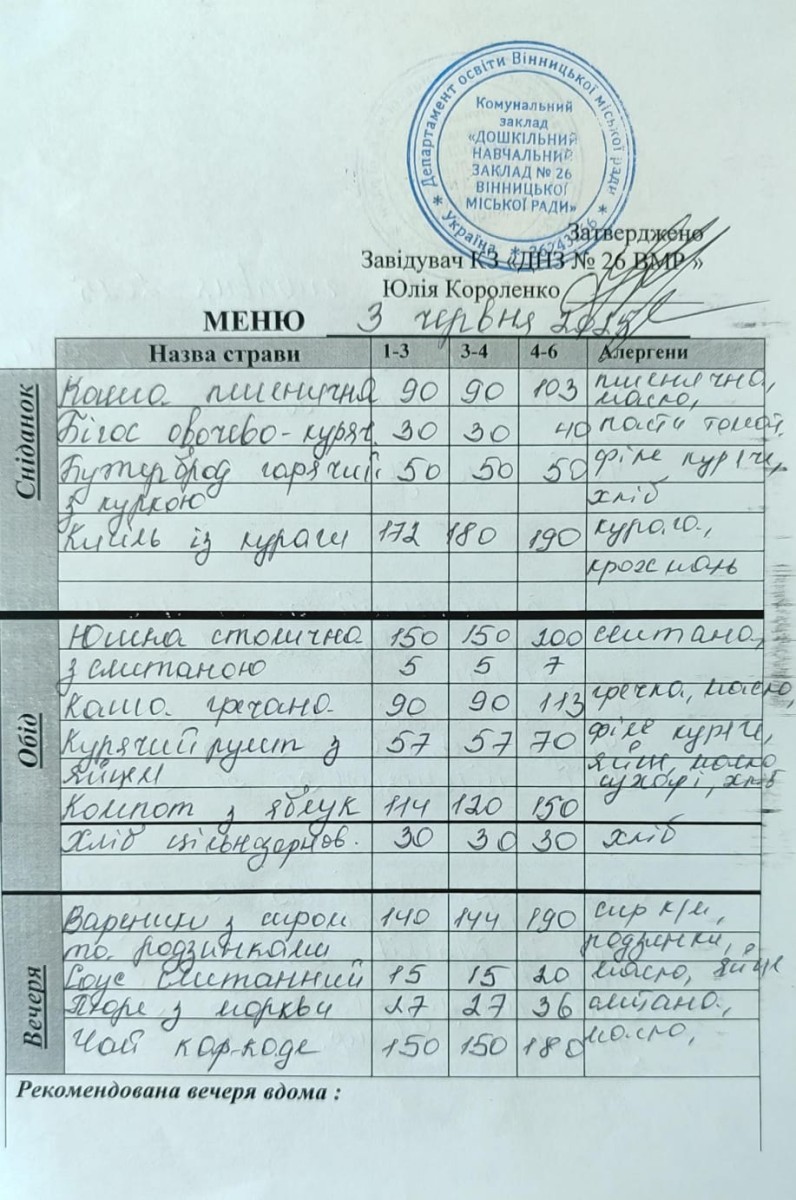 Департамент освіти Вінницької міської ради
* Україна *
Комунальний
заклад
«ДОШКІЛЬНИЙ
НАВЧАЛЬНИЙ
ЗАКЛАД № 26
ВІННИЦЬКОЇ
МІСЬКОЇ РАДИ»
Затверджено
Завідувач КЗ «ДНЗ № 26 ВМР »
Юлія Короленко
МЕНЮ 3 червня 2025
Назва страви 1-3 3-4 4-6 Алергени
Сніданок
Каша пшенична 90 90 103 пшенична, масло,
Бігос овочево-куряч. 30 30 40 паста томат.
Бутерброд гарячий 50 50 50 філе куряче,
з куркою хліб
Кисіль із кураги 172 180 190 курага,
крохмаль
Обід
Юшка столична 150 150 200 сметана,
з сметаною 5 5 7
Каша гречана 90 90 113 гречка, масло,
Курячий рулет з 57 57 70 філе куряче,
яйцем яйце, молоко
сухарі, хліб
Компот з яблук 114 120 150
Хліб цільнозернов. 30 30 30 хліб
Вечеря
Вареники з сиром 140 144 190 сир к/м,
та родзинками родзинки,
Соус сметанний 15 15 20 масло, яйце
Пюре з моркви 27 27 36 сметана,
Чай кар-каде 150 150 180 масло,
Рекомендована вечеря вдома :